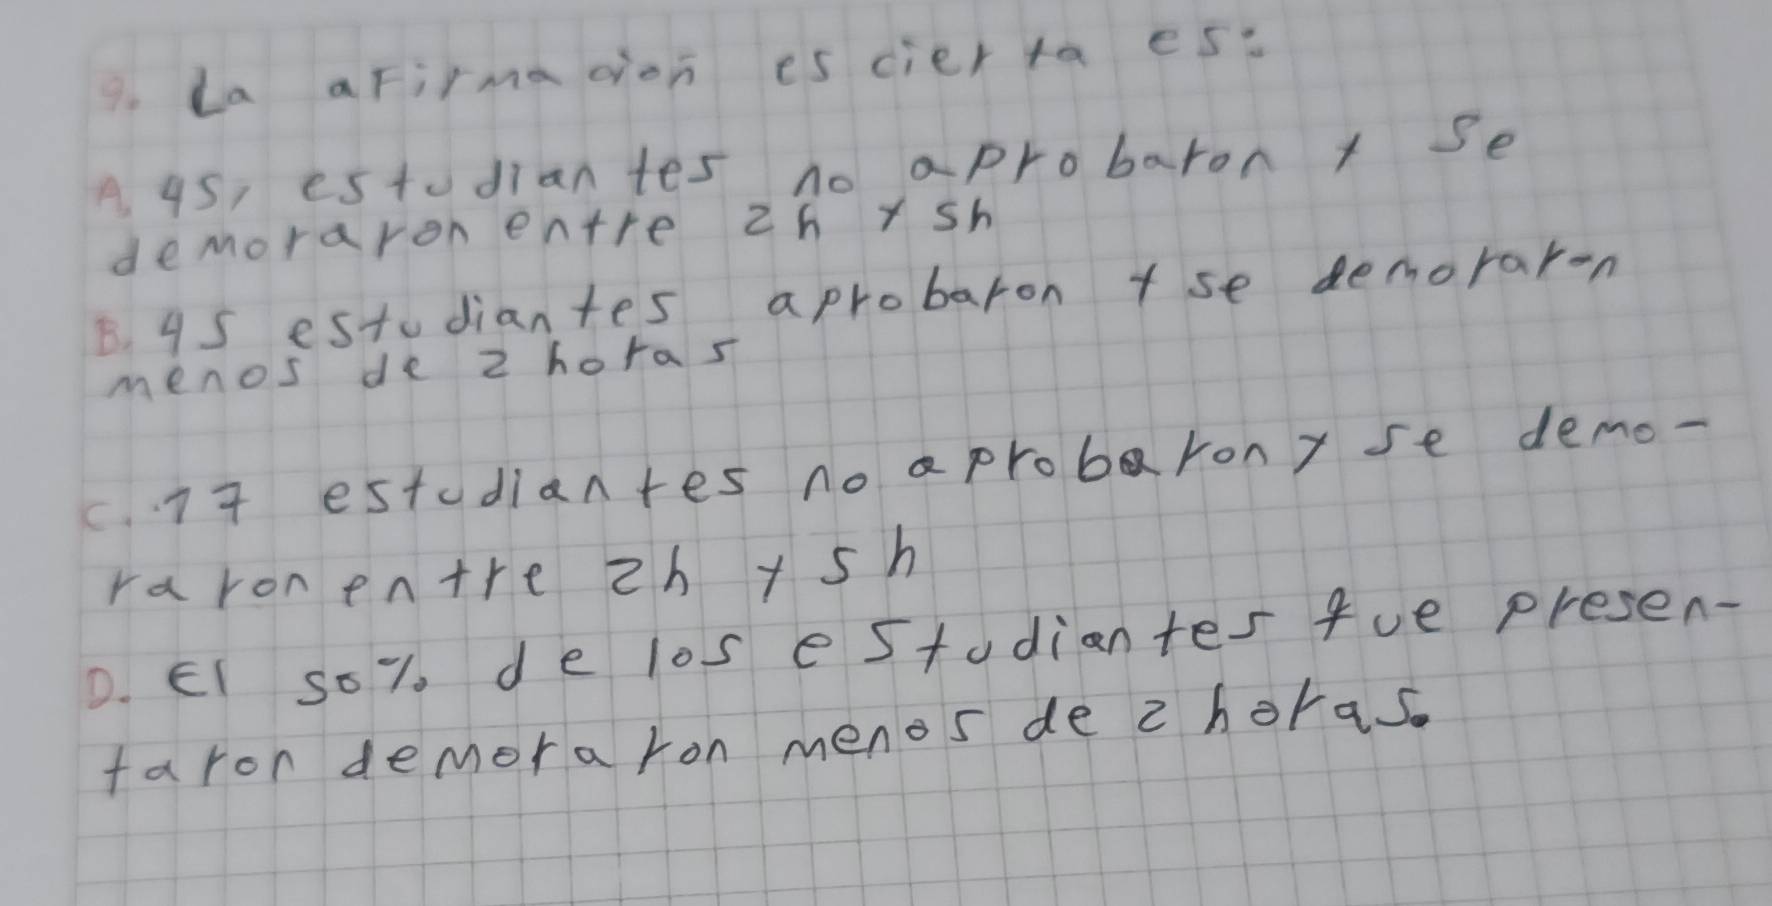 9. La aFirmacion es cierta es:
A. 45, estudiantes no aprobaron y se
demoraron entre 2h y 5h
B. 45 estudiantes aprobaron y se demoraron
menos de 2 horas
C. 17 estudiantes no aprobaron y se demo-
raron entre 2h y 5h
D. El 50% de los estudiantes que presen-
taron demoraron menos de 2 horas.